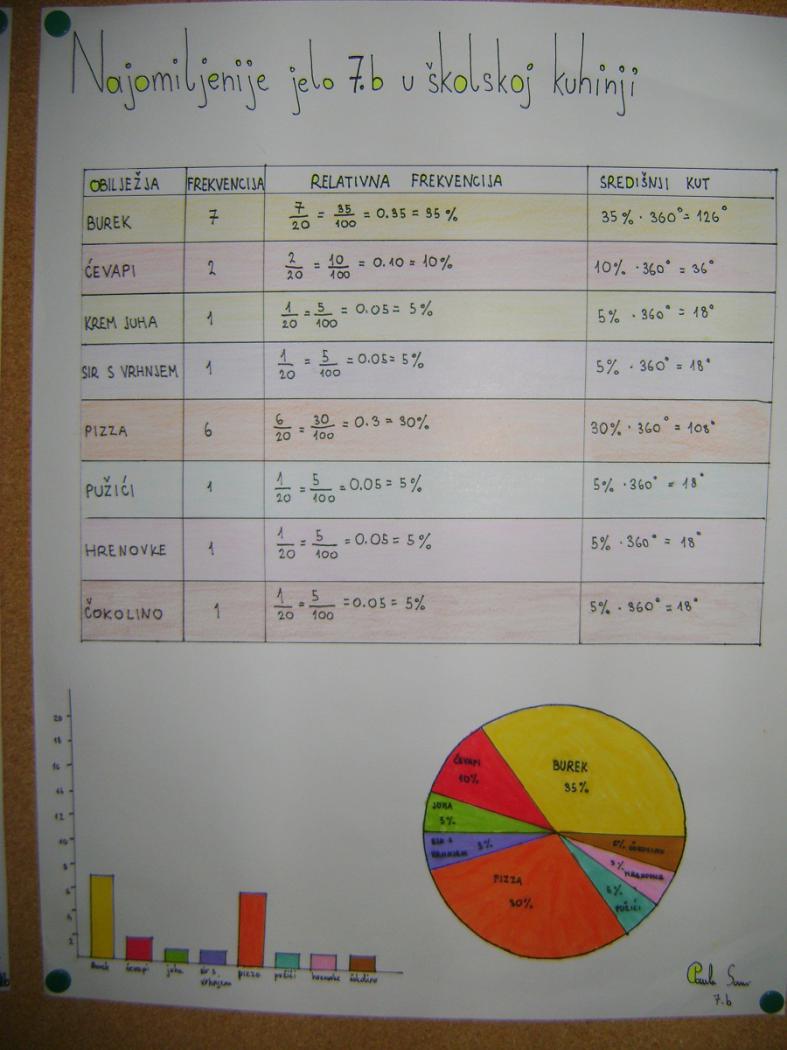 Najomiljenije jelo 7.b u školskoj kuhinji
OBILJEŽJA FREKVENCIJA RELATIVNA FREKVENCIJA SREDIŠNJI KUT
BUREK 7 7/20 = 35/100 = 0.35 = 35% 35% · 360° = 126°
ĆEVAPI 2 2/20 = 10/100 = 0.10 = 10% 10% · 360° = 36°
KREM JUHA 1 1/20 = 5/100 = 0.05 = 5% 5% · 360° = 18°
SIR S VRHNJEM 1 1/20 = 5/100 = 0.05 = 5% 5% · 360° = 18°
PIZZA 6 6/20 = 30/100 = 0.3 = 30% 30% · 360° = 108°
PUŽIĆI 1 1/20 = 5/100 = 0.05 = 5% 5% · 360° = 18°
HRENOVKE 1 1/20 = 5/100 = 0.05 = 5% 5% · 360° = 18°
ČOKOLINO 1 1/20 = 5/100 = 0.05 = 5% 5% · 360° = 18°
20
18
16
14
12
10
8
6
4
2
Burek ćevapi juha sir s vrhnjem pizza pužići hrenovke čokolino
BUREK
35%
ĆEVAPI
10%
JUHA
5%
SIR S
VRHNJEM 5%
PIZZA
30%
5% ČOKOLINO
5% HRENOVKE
5%
PUŽIĆI
7.b